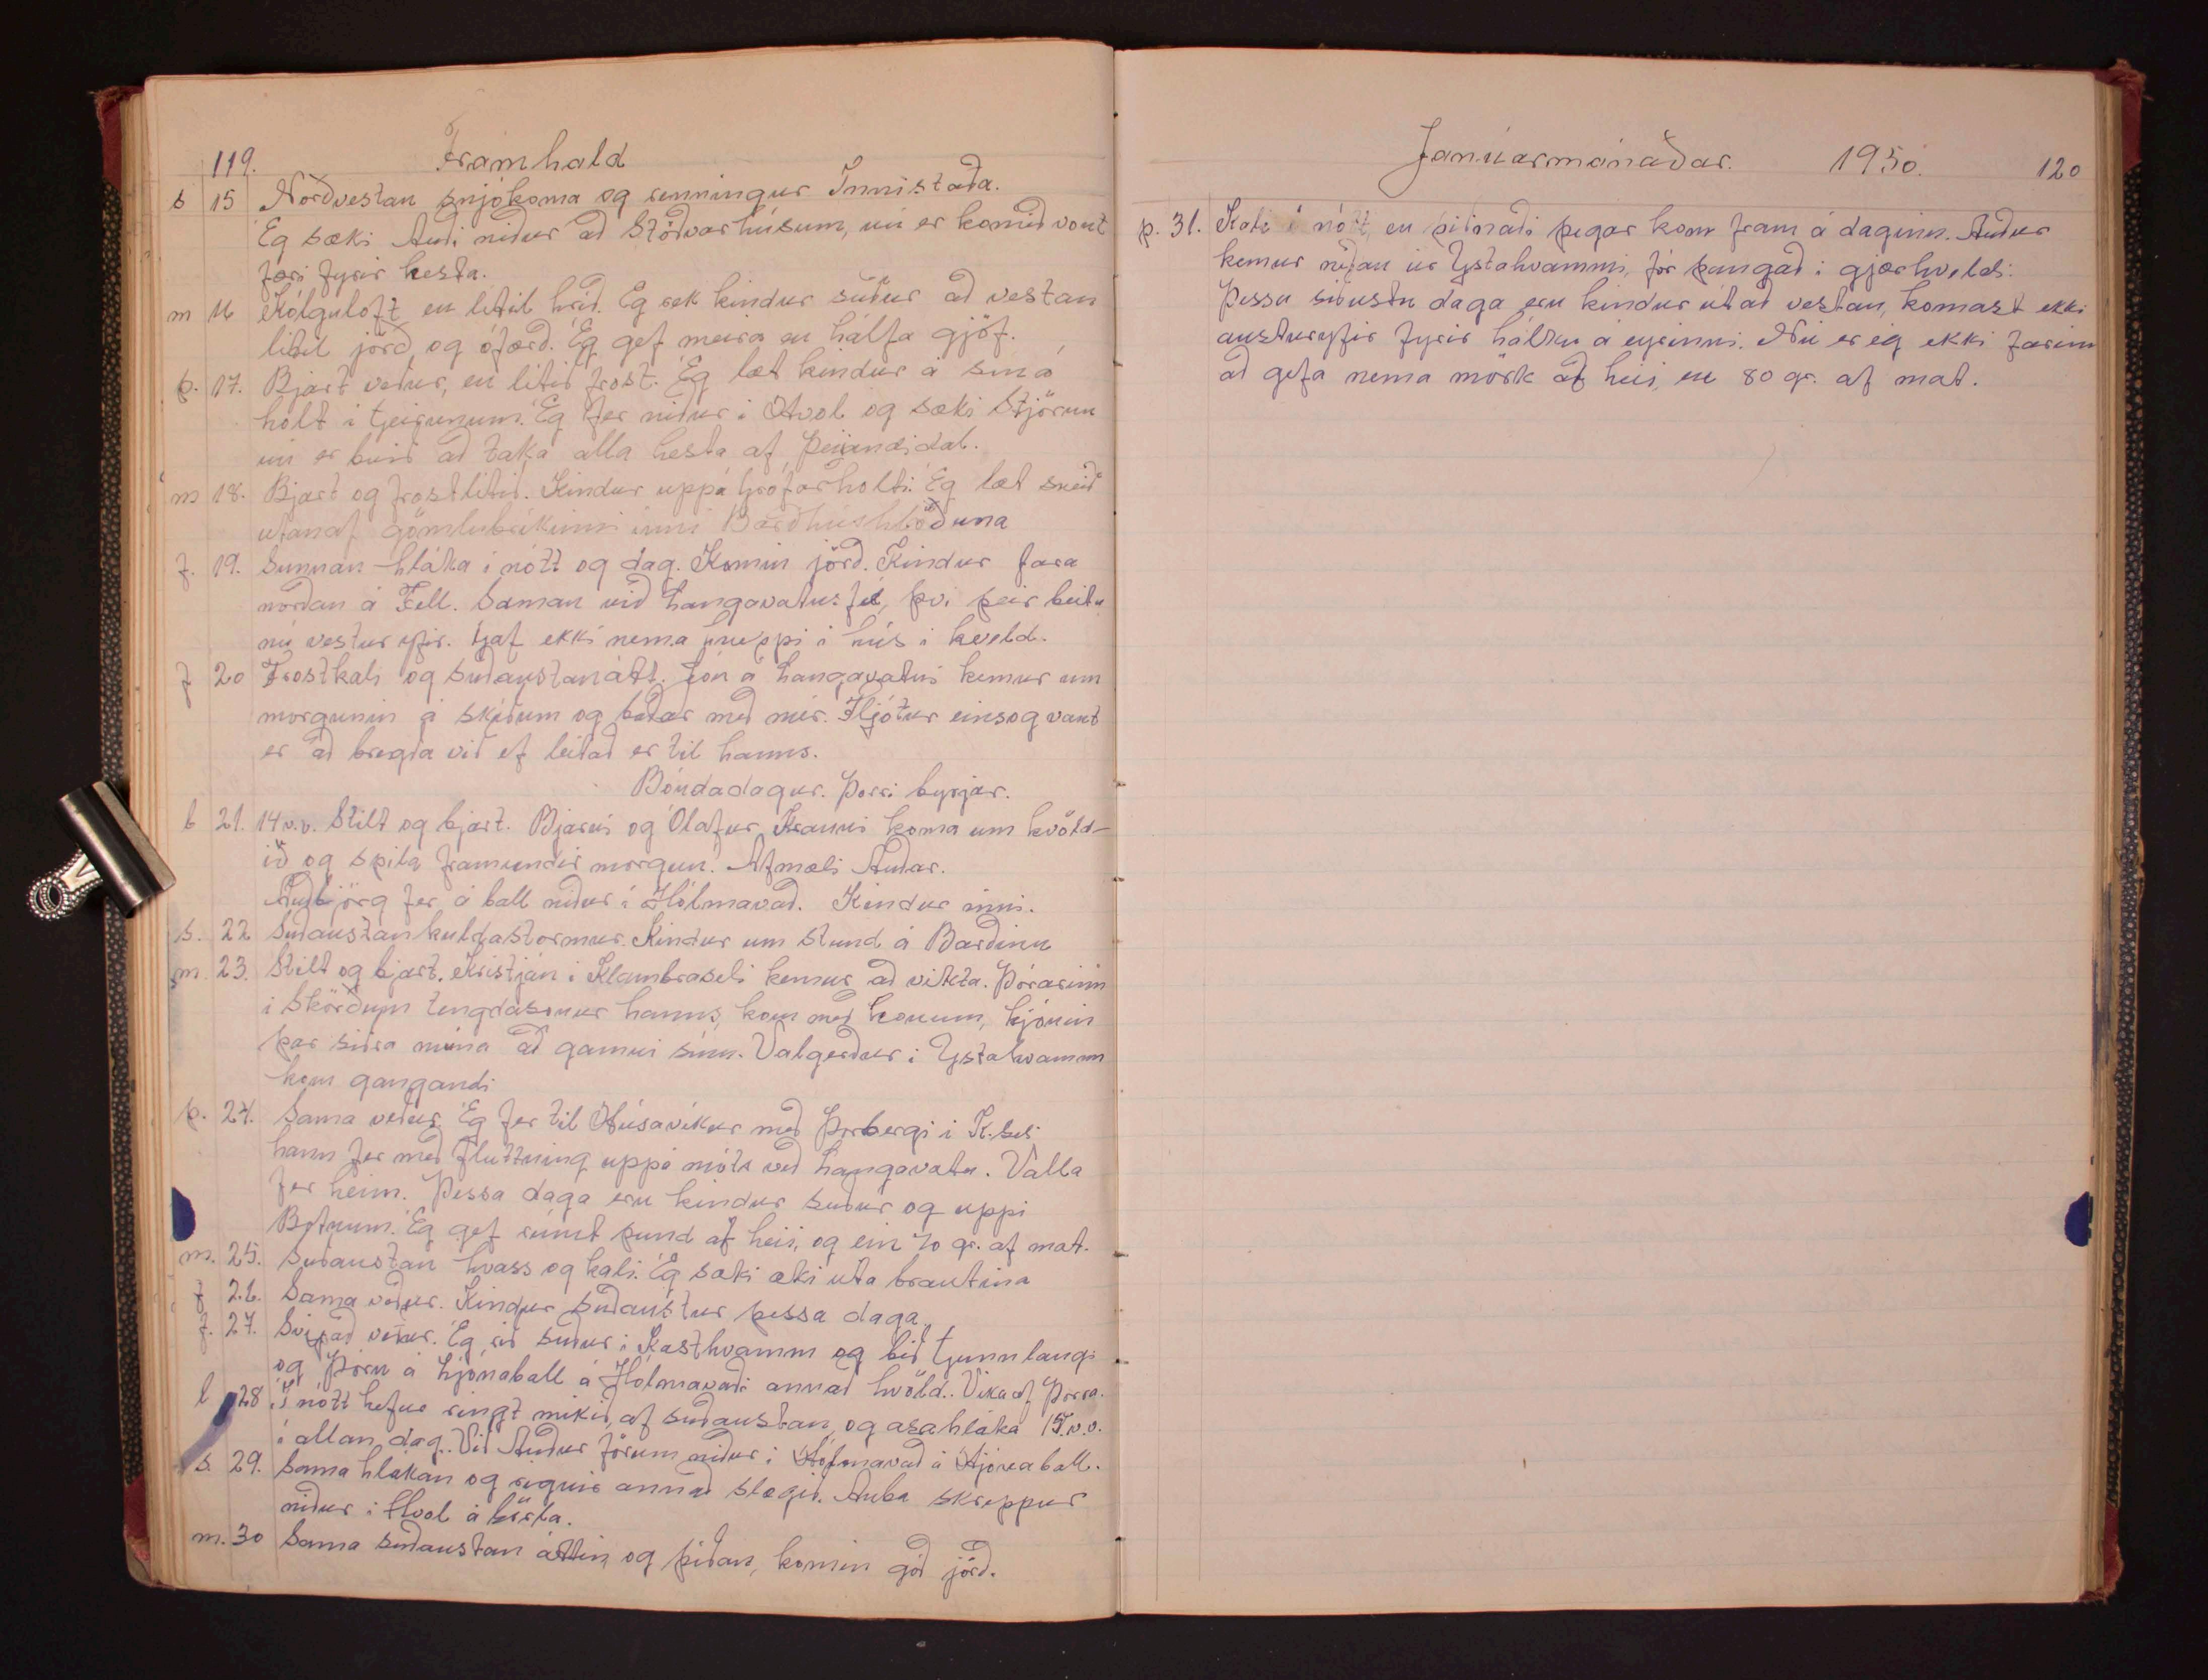 119. Framhald
s 15 Norðvestan snjókoma og renningur Innistaða.
Eg sæki Auði niður að Stöðvarhúsum, nú er komið vont
færi fyrir hesta.
m 16 Kólguloft en lítil hríð. Eg rek kindur suður að vestan
lítil jörð og ófærð. Eg gef meira en hálfa gjöf.
þ. 17. Bjart veður, en lítið frost. Eg læt kindur á smá
holt i Geirunum. Eg fer niður i Hvol og sæki Stjörnu
nú er búið að taka alla hesta af Þeijandidal.
m 18. Bjart og frostlítið. Kindur uppá Grófarholti. Eg læt sneið
utanaf gömlubríkinni inni Barðhúshlöðuna
f. 19. Sunnan hláka i nótt og dag. Komin jörð. Kindur fara
norðan á Fell. Saman við Langavatnsfé, því þeir beita
nú vestur yfir. Gaf ekki nema hneppi i hús i kveld.
f 20 Frostkali og suðaustanátt. Jón á Langavatni kemur um
morgunin á skíðum og baðar með mér. Fljótur einsog vant
er að bregða við ef leitað er til hanns.
Bóndadagur. Þorri byrjar.
l 21. 14 v.v. Stilt og bjart. Bjarni og Ólafur Kranni koma um kvöld-
ið og spila framundir morgun. Afmæli Auðar.
Auðbjörg fer á ball niður i Hólmavað. Kindur inni.
s. 22 Suðaustan kuldastormur. Kindur um stund á Barðinu
m. 23. Stilt og bjart. Kristján i Klambraseli kemur að vikta. Þórarinn
i Skörðum tengdasonur hanns, kom með honum, hjónin
þar síðra núna að gamni sínu. Valgerður i Ystahvamm
kom gangandi
þ. 24. Sama veður. Eg fer til Húsavíkur með Þorbergi i K.seli
hann fer með fluttning uppá móts við Langavatn. Valla
fer heim. Þessa daga eru kindur suður og uppi
Botnum. Eg gef rúmt pund af heii, og ein 70 gr. af mat.
m. 25. Suðaustan hvass og kali. Eg sæki æki útá brautina
f 26. Sama veður. Kindur suðaustur þessa daga.
f. 27. Svipað veður. Eg rið suður i Kasthvamm og bið Gunnlaugi
og Þóru á hjónaball á Hólmavaði annað kvöld. Vika af Þorra.
l 28 Í nótt hefur ringt mikið, af suðaustan, og asahláka 15. v.v.
i allan dag. Við Auður förum niður i Hólmavað á hjónaball.
s. 29. Sama hlákan og rignir annað slagið. Auba skreppur
niður i Hvol á
m. 30 Sama suðaustan áttin og þíðan, komin góð jörð.
Janúarmánaðar. 1950. 120
þ. 31. Kali i nótt, en þiðnaði þegar kom fram á daginn. Auður
kemur neðan úr Ystahvammi, fór þangað i gjærkveldi.
Þessa síðustu daga eru kindur út að vestan, komast ekki
austuryfir fyrir hálku á eyrinni. Nú er eg ekki farinn
að gefa nema mörk af heii, en 80 gr. af mat.